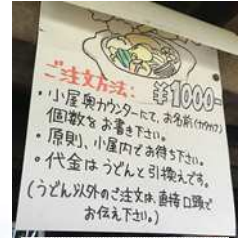 ご注文方法:
¥1000-
・小屋奥カウンターにて、お名前(カタカナ)
個数をお書き下さい。
・原則、小屋内でお待ち下さい。
・代金はうどんと引換えです。
(うどん以外のご注文は、直接口頭で
お伝え下さい。)